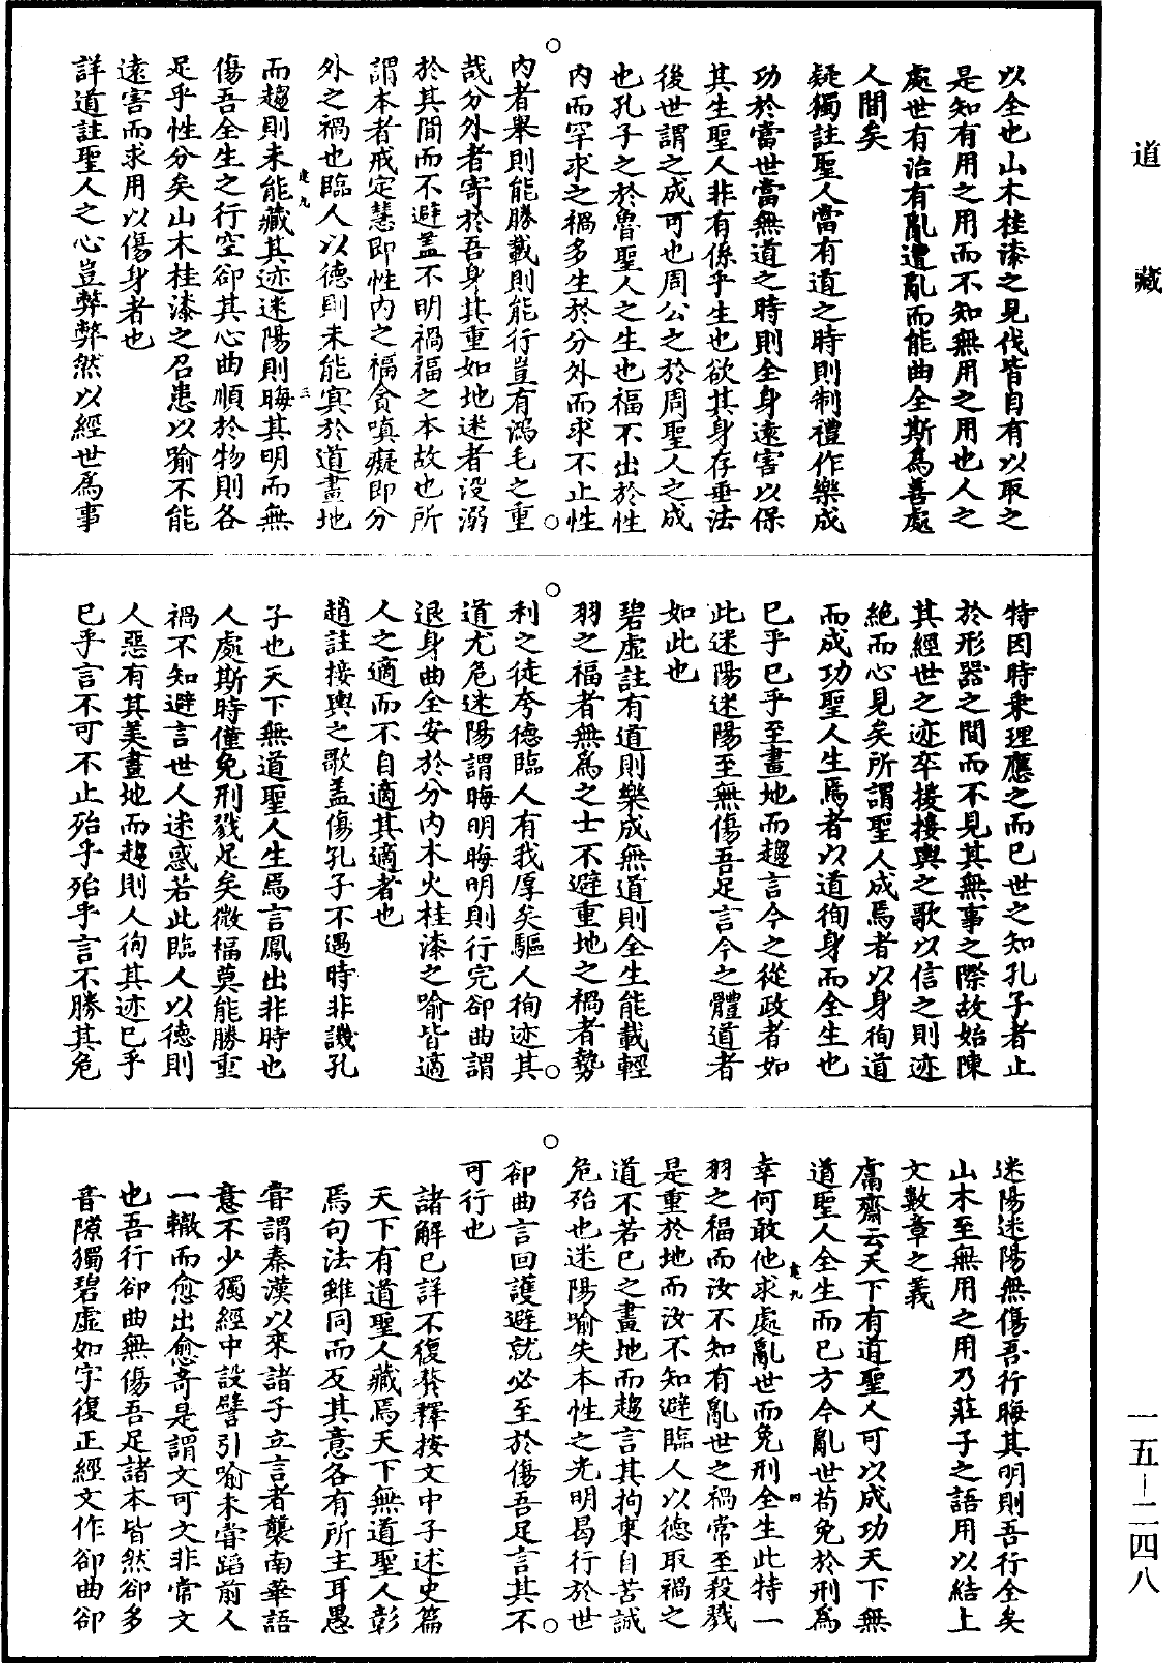 道藏
以全也山木桂漆之見伐皆自有以取之
是知有用之用而不知無用之用也人之
處世有治有亂遭亂而能曲全斯為善處
人間矣
疑獨註聖人當有道之時則制禮作樂成
功於當世當無道之時則全身遠害以保
其生聖人非有係乎生也欲其身存垂法
後世謂之成可也周公之於周聖人之成
也孔子之於魯聖人之生也福不出於性
内而罕求之禍多生於分外而求不止性
内者舉則能勝載則能行豈有鴻毛之重
哉分外者寄於吾身其重如地迷者没溺
於其間而不避盖不明禍福之本故也所
謂本者戒定慧即性内之福貪嗔癡即分
外之禍也臨人以德則未能㝠於道畫地
而趨則未能藏其迹迷陽則晦其明而無
傷吾全生之行空卻其心曲順於物則各
足乎性分矣山木桂漆之召患以喻不能
遠害而求用以傷身者也
詳道註聖人之心豈弊弊然以經世為事
特因時乗理應之而已世之知孔子者止
於形器之間而不見其無事之際故始陳
其經世之迹卒接接輿之歌以信之則迹
絶而心見矣所謂聖人成焉者以身徇道
而成功聖人生焉者以道徇身而全生也
已乎已乎至畫地而趨言今之從政者如
此迷陽迷陽至無傷吾足言今之體道者
如此也
碧虚註有道則樂成無道則全生能載輕
羽之福者無為之士不避重地之禍者勢
利之徒夸德臨人有我厚矣驅人徇迹其
道尤危迷陽謂晦明晦明則行完卻曲謂
退身曲全安於分内木火桂漆之喻皆適
人之適而不自適其適者也
趙註接輿之歌盖傷孔子不遇時非譏孔
子也天下無道聖人生焉言鳳出非時也
人處斯時僅免刑戮足矣微福莫能勝重
禍不知避言世人迷惑若此臨人以德則
人惡有其美畫地而趨則人徇其迹已乎
已乎言不可不止殆乎殆乎言不勝其危
迷陽迷陽無傷吾行晦其明則吾行全矣
山木至無用之用乃莊子之語用以結上
文數章之義
鬳齋云天下有道聖人可以成功天下無
道聖人全生而已方今亂世苟免於刑為
幸何敢他求處亂世而免刑全生此特一
羽之福而汝不知有亂世之禍常至殺戮
是重於地而汝不知避臨人以德取禍之
道不若已之畫地而趨言其拘束自苦誠
危殆也迷陽喻失本性之光明曷行於世
卻曲言回護避就必至於傷吾足言其不
可行也
諸解已詳不復䝉釋按文中子述史篇
天下有道聖人藏焉天下無道聖人彰
焉句法雖同而反其意各有所主耳愚
甞謂秦漢以來諸子立言者襲南華語
意不少獨經中設譬引喻未甞蹈前人
一轍而愈出愈奇是謂文可文非常文
也吾行卻曲無傷吾足諸本皆然卻多
音隙獨碧虚如字復正經文作卻曲卻
一五—二四八